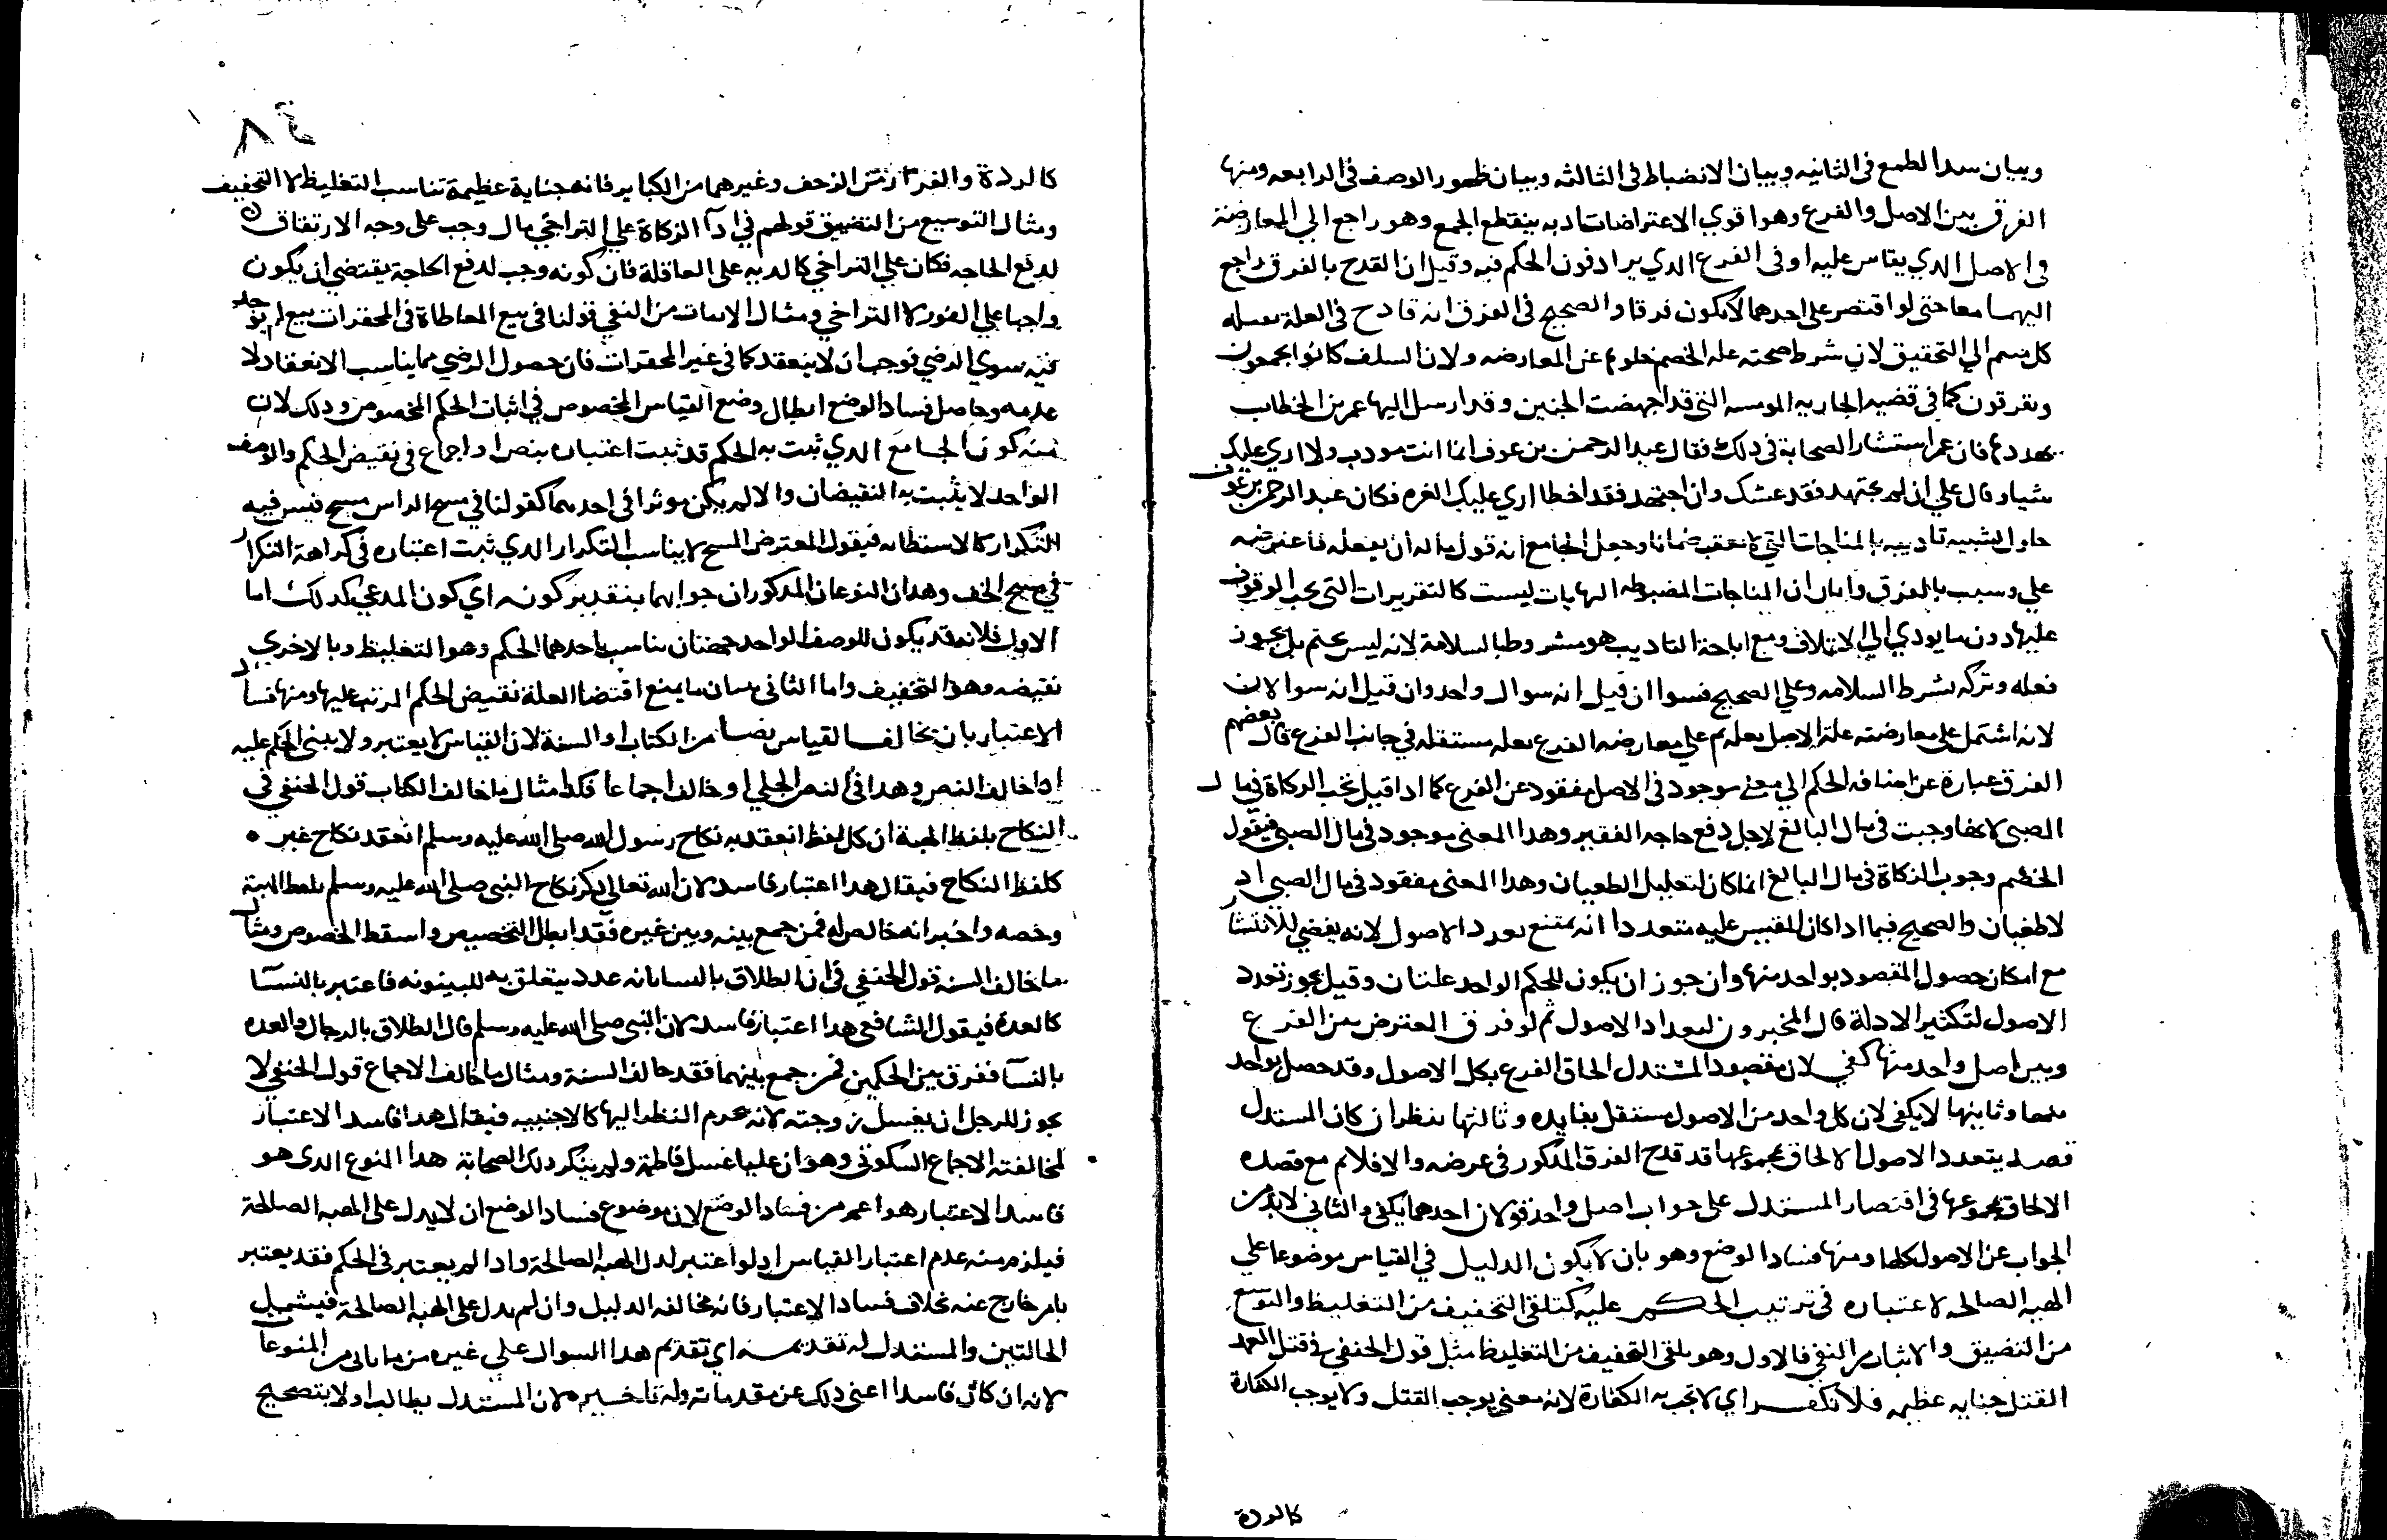 وبيان سد الطمع فى الثانيه وبيان الانضباط فى الثالثه وبيان ظهور الوصف فى الرابعه ومنها
الفرق بين الاصل والفرع وهو اقوي الاعتراضات اد به ينقطع الجمع وهو راجع الي المعارضة
فى الاصل الدي يقاس عليه او فى الفرع الدي يرادفون الحكم فيه وقيل ان القدح بالفرق راجع
اليهما معا حتى لو اقتصر على احدهما لا يكون فرقا والصحيح فى الفرق انه قادح فى العلة
كل منهم الي التحقيق لان شرط صحته عله الخصم خلوه عن المعارضه ولان السلف كانوا يجمعون
ويفرقون كما فى قضيه الجاريه المومسه التى قد اجهضت الجنين وقد ارسل اليها عمر بن الخطاب
يهددها فان عمر استشار الصحابة فى دلك فقال عبد الرحمن بن عوف انما انت مودب ولا اري عليك
شيا وقال علي ان لم يجتهد فقد غشك وان اجتهد فقد اخطا اري عليك الغره فكان عبد الرحمن بن عوف
حاول تشبيه تاديبه بالمناجات التي لا تعقب ضمانا وجعل الجامع انه قول ماله ان يفعله فاعترضه
علي وسبب بالفرق وابان ان المناجات المضبوطه النهايات ليست كالتقريرات التى يجب الوقوف
عليها دون ما يودي الي الاتلاف ومع اباحة التاديب هو مشروط بالسلامة لانه ليس بحتم بل يجوز
فعله وتركه بشرط السلامه وعلي الصحيح فسوا ان قيل انه سوال واحد وان قيل انه سوالان
لانه اشتمل على معارضته علة الاصل بعله ثم علي معارضه الفرع بعله مستقله في جانب الفرع قال بعضهم
الفرق عبارة عن اضافه الحكم الي معنى موجود فى الاصل مفقود عن الفرع كما ادا قيل تجب الزكاة في مال
الصبي لانها وجبت فى مال البالغ لاجل دفع حاجه الفقير وهدا المعنى موجود فى مال الصبي فيقول
الخصم وجوب الزكاة فى مال البالغ انما كان لتعليل الطغيان وهدا المعنى مفقود فى مال الصبي اد
لا طغيان والصحيح فيما ادا كان المقيس عليه متعددا انه يمتنع تعدد الاصول لانه يفضي للانتشار
مع امكان حصول المقصود بواحد منها وان جوز ان يكون للحكم الواحد علتان وقيل يجوز تعدد
الاصول لتكثير الادلة قال المخبرون لتعداد الاصول ثم لو فرق المعترض بين الفرع
وبين اصل واحد منها كفى لان مقصود المستدل الحاق الفرع بكل الاصول وقد حصل بواحد
منهما وثانيها لا يكفي لان كل واحد من الاصول مستقل بفايده وثالثها ننظر ان كان المستدل
قصد بتعدد الاصول الالحاق بمجموعها قد قدح الفرق المدكور فى غرضه والا فلا ثم مع قصده
الالحاق بمجموعها فى اقتصار المستدل على جواب اصل واحد قولان احدهما يكفي والثاني لا بد من
الجواب عن الاصول كلها ومنها فساد الوضع وهو بان لا يكون الدليل في القياس موضوعا علي
الهيه الصالحه لاعتباره فى ترتيب الحكم عليه كتلقي التخفيف من التغليظ والتوسع
من التضييق والاثبات من النفي فالاول وهو تلقي التخفيف من التغليظ مثل قول الحنفي فى قتل العمد
القتل جنايه عظيمه فلا تكفر اي لا تجب به الكفارة لانه معنى يوجب القتل ولا يوجب الكفارة
كالردة
كالردة والفرار من الزحف وغيرهما من الكباير فانه جناية عظيمة تناسب التغليظ لا التخفيف
ومثال التوسيع من التضييق قولهم في ادآ الزكاة علي التراخي مال وجب على وجه الارتفاق
لدفع الحاجه فكان علي التراخي كالديه على العاقلة فان كونه وجب لدفع الحاجة يقتضي ان يكون
واجبا علي الفور لا التراخي ومثال الاثبات من النفي قولنا فى بيع المعاطاة فى المحقرات بيع لم يوجد
فيه سوي الرضي فوجب ان لا ينعقد كما فى غير المحقرات فان حصول الرضي مما يناسب الانعقاد لا
عدمه وحاصل فساد الوضع ابطال وضع القياس المخصوص في اثبات الحكم المخصوص ودلك لان
منه كون الجامع الدي ثبت به الحكم قد ثبت اعتباره بنص او اجماع فى نقيض الحكم والوصف
الواحد لا يثبت به النقيضان والا لم يكن موثرا فى احدهما كقولنا في مسح الراس مسح فيسن فيه
التكرار كالاستطابه فيقول المعترض المسح لا يناسب التكرار الدي ثبت اعتباره فى كراهة التكرار
في مسح الخف وهدان النوعان المدكوران جوابهما بتقدير كونه اي كون المدعي كدلك اما
الاول فلانه قد يكون للوصف الواحد جهتان يناسب باحدهما الحكم وهو التغليظ وبالاخري
نقيضه وهو التخفيف واما الثانى ببيان ما يمنع اقتضا العلة نقيض الحكم المرتب عليها ومنها فساد
الاعتبار بان يخالف القياس نصا من الكتاب او السنة لان القياس لا يعتبر ولا يبنى الحكم عليه
ادا خالف النص وهدا فى النص الجلي او خالف اجماعا فكدا مثال ما خالف الكتاب قول الحنفي في
النكاح بلفظ الهبة ان كل لفظ انعقد به نكاح رسول الله صلي الله عليه وسلم انعقد نكاح غيره
كلفظ النكاح فيقال هدا اعتبار فاسد لان الله تعالي دكر نكاح النبي صلي الله عليه وسلم بلفظ الهبة
وخصه واخبر انه خالص له فمن جمع بينه وبين غيره فقد ابطل التخصيص واسقط الخصوص ومثال
ما خالف السنه قول الحنفي فى ان الطلاق بالنسا بانه عدد يتعلق به للبينونه فاعتبر بالنسآ
كالعدة فيقول الشافعي هدا اعتبار فاسد لان النبي صلي الله عليه وسلم قال الطلاق بالرجال والعده
بالنسآ ففرق بين الحكمين فمن جمع بينهما فقد خالف السنة ومثال ما خالف الاجماع قول الحنفي لا
يجوز للرجل ان يغسل زوجته لانه يحرم النظر اليها كالاجنبيه فيقال هدا فاسد الاعتبار
لمخالفته الاجماع السكوتي وهو ان عليا غسل فاطمة ولم ينكر دلك الصحابة هدا النوع الدى هو
فاسد الاعتبار هو اعم من فساد الوضع لان موضوع فساد الوضع ان لا يدل على الهيه الصالحة
فيلزم منه عدم اعتبار القياس اد لو اعتبر لدل الهيه الصالحة وادا لم يعتبر فى الحكم فقد يعتبر
بامر خارج عنه بخلاف فساد الاعتبار فانه مخالفه الدليل وان لم يدل على الهيه الصالحة فيشمل
الحالتين والمستدل له تقديمه اي تقديم هدا السوال علي غيره من ما ياتى من المنوعا
لانه ان كان فاسدا اغنى دلك عن مقدماته وله تاخيره لان المستدل يطالب اولا بتصحيح